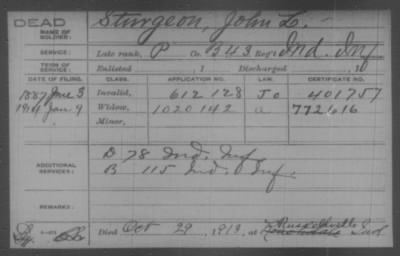 DEAD
NAME OF SOLDIER: Sturgeon, John L.
SERVICE: Late rank, P Co. B 43 Reg't Ind. Inf
TERM OF SERVICE: Enlisted , 1 Discharged , 1
DATE OF FILING. CLASS. APPLICATION NO. LAW. CERTIFICATE NO.
1887 June 3 Invalid, 612128 Jo 401757
1914 Jan 9 Widow, 1020142 a 772616
Minor,
ADDITIONAL SERVICES: D 78 Ind. Inf.
B 115 Ind. Inf.
REMARKS:
Died Oct 29, 1913, at Russellville Ind